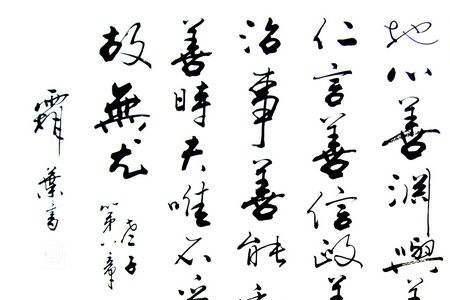 地心善淵與善
仁言善信政善
治事善能
善時夫唯不
故無尤
老子
第八章